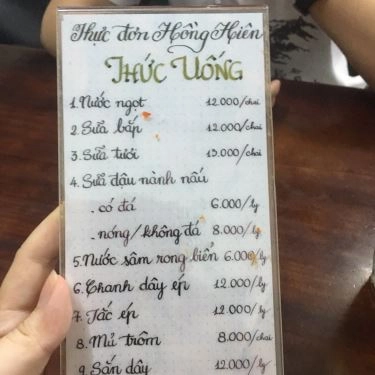 Thực đơn Hồng Hiên
THỨC UỐNG
1. Nước ngọt 12.000/chai
2. Sữa bắp 12.000/chai
3. Sữa tươi 15.000/chai
4. Sữa đậu nành nấu
. có đá 6.000/ly
. nóng/không đá 8.000/ly
5. Nước sâm rong biển 6.000/ly
6. Chanh dây ép 12.000/ly
7. Tắc ép 12.000/ly
8. Mủ trôm 8.000/chai
9. Sắn dây 12.000/ly